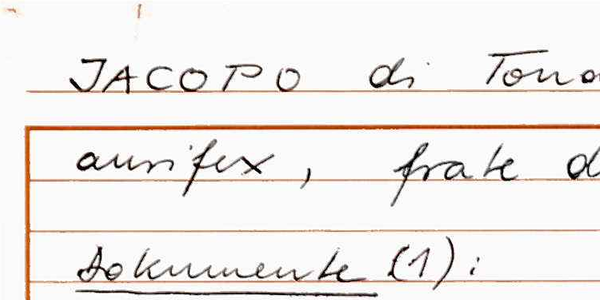 JACOPO di
aurifex, frate
Dokumente (1):